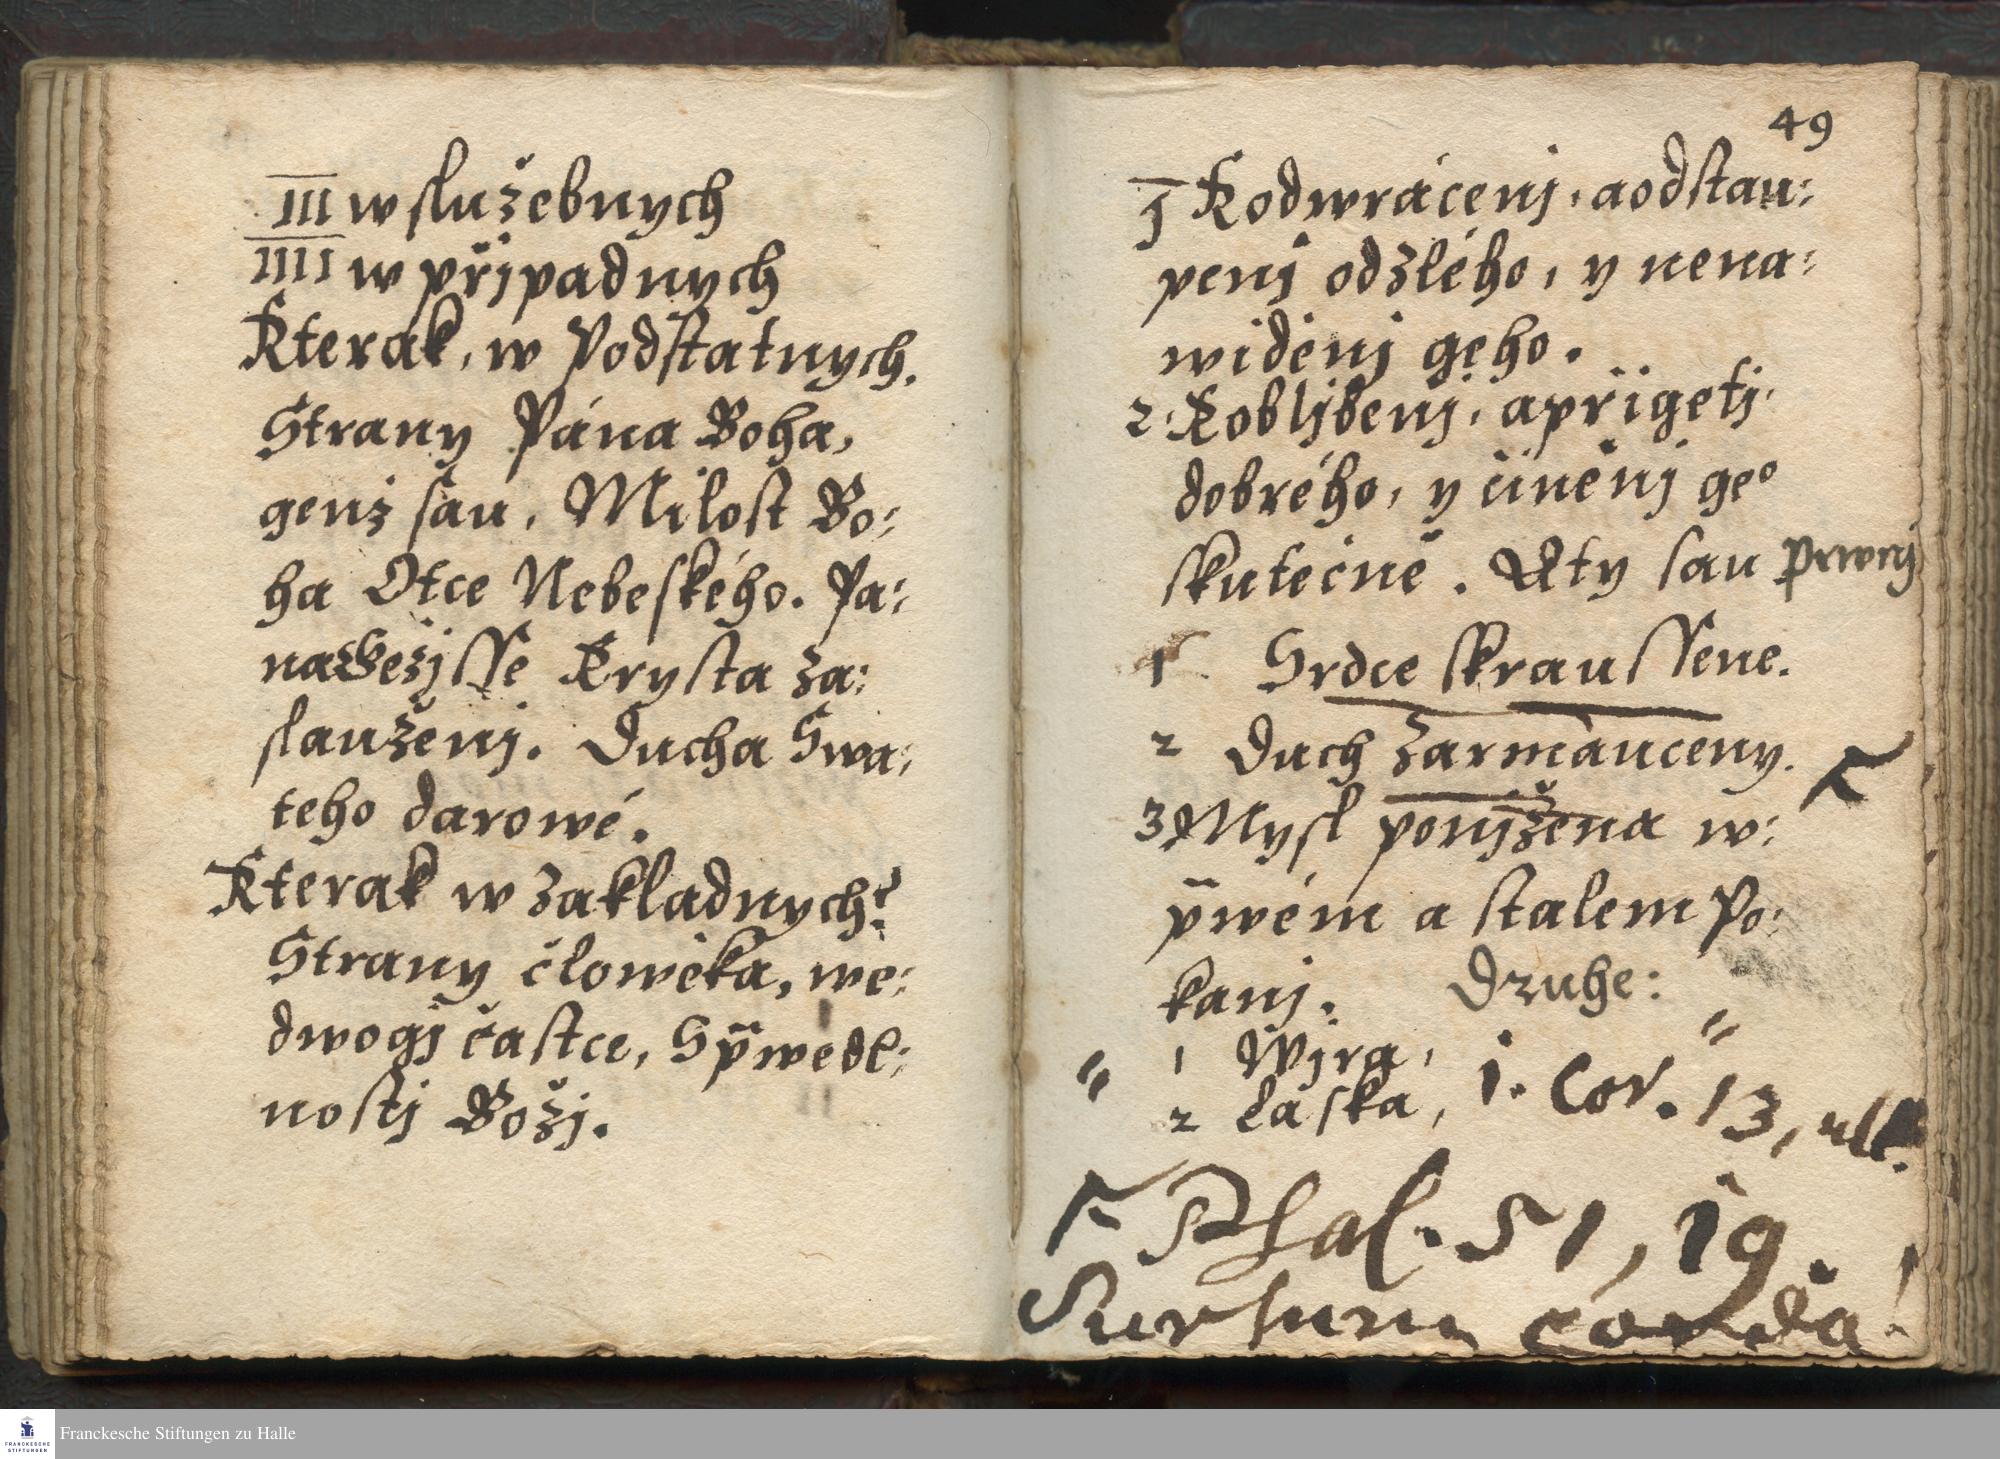 III w služebnych
IIII w přjpadnych
Kterak, w Podstatnych.
Strany Pána Boha,
genž sau, Milost Bo:
ha Otce Nebeského. Pa:
na Gežjsse Krysta za:
slauženj. Ducha Swa:
teho darowé.
Kterak w zakladnych?
Strany člowěka, we:
dwogj častce, Sp̃wedl:
nostj Božj.
49
J K odwrácenj, a odstau:
penj od zlého, y nena:
widěnj geho.
2. K oblјbenj, a přigetj.
dobrého, y činěnj geº
skutečně. A ty sau prwnj
1 Srdce skraussene.
2 Duch zarmauceny.
3 Mysl ponjžena w:
p̃wém a stalem Po:
kanj. Druhe:
1 Wjra,
2 Laska, i. Cor. 13, ult.
Psal. 51, 19.
Sursum corda!
Franckesche Stiftungen zu Halle
FRANCKESCHE
STIFTUNGEN